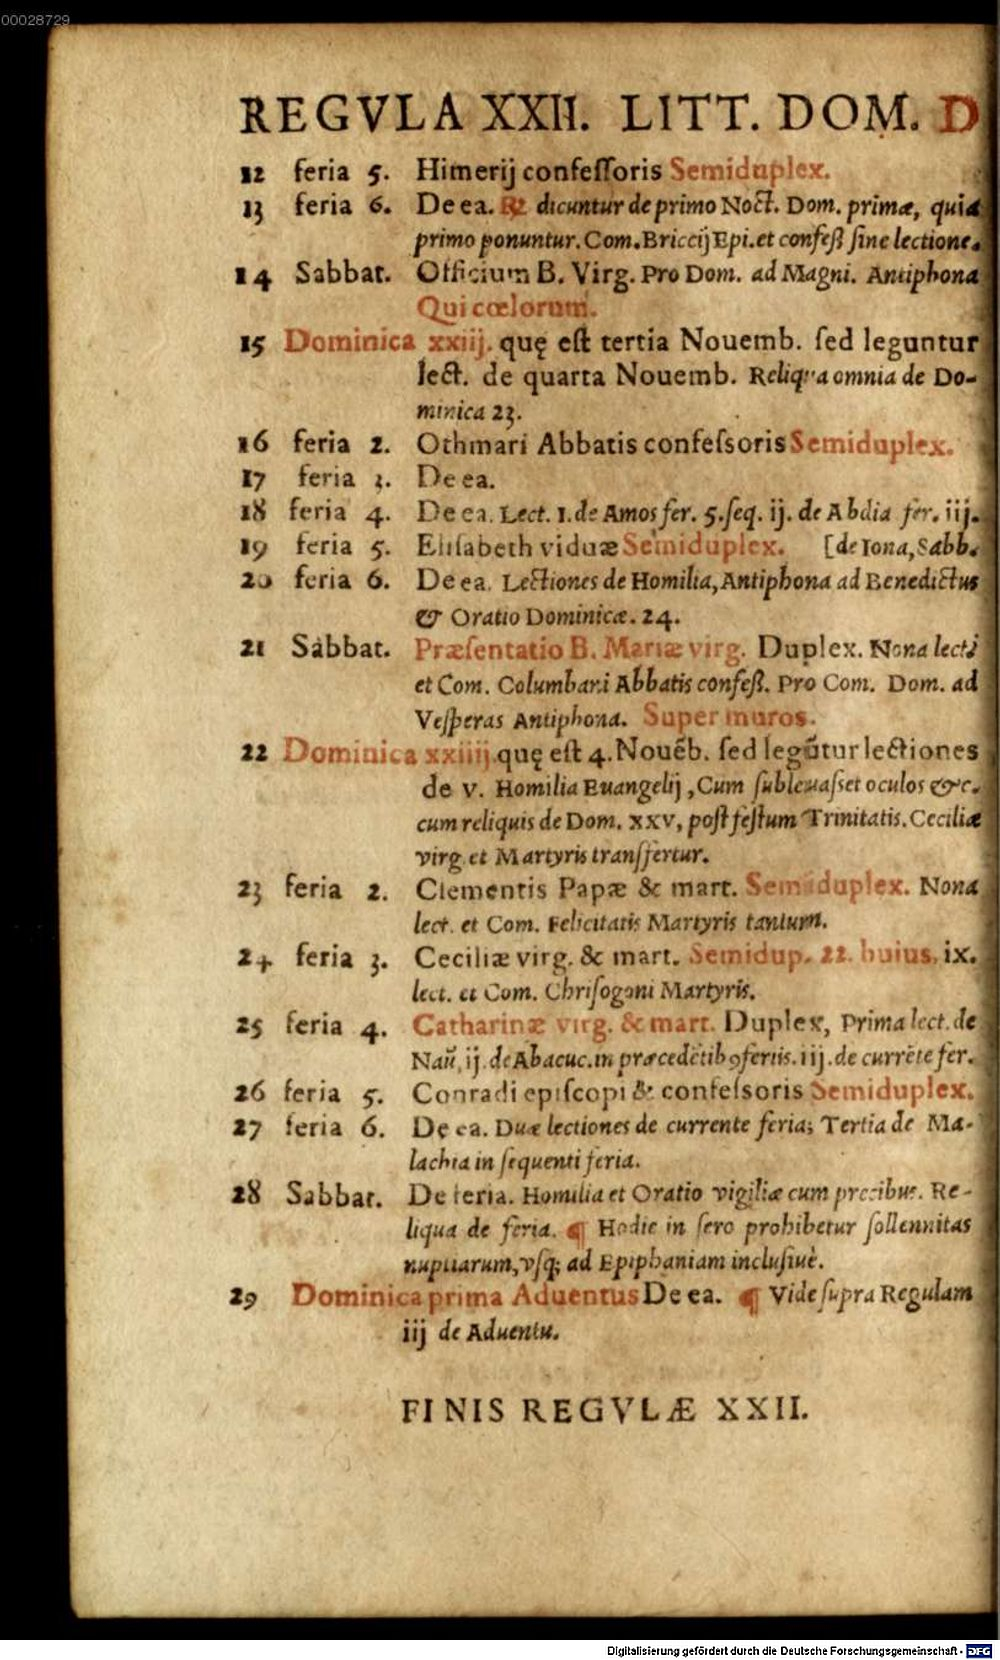 00028729
REGVLA XXII. LITT. DOM. D
12 feria 5. Himerij confeſſoris Semiduplex.
13 feria 6. De ea. ℞ dicuntur de primo Noct. Dom. primæ, quia
primo ponuntur. Com. Briccij Epi. et confeß ſine lectione.
14 Sabbat. Officium B. Virg. Pro Dom. ad Magni. Antiphona
Qui cœlorum.
15 Dominica xxiij. quę eſt tertia Nouemb. ſed leguntur
lect. de quarta Nouemb. Reliqua omnia de Do-
minica 23.
16 feria 2. Othmari Abbatis confeſsoris Semiduplex.
17 feria 3. De ea.
18 feria 4. De ea. Lect. 1. de Amos fer. 5. ſeq. ij. de Abdia fer. iij.
19 feria 5. Eliſabeth viduæ Semiduplex. [de Iona, Sabb.
20 feria 6. De ea. Lectiones de Homilia, Antiphona ad Benedictus
& Oratio Dominicæ. 24.
21 Sabbat. Præſentatio B. Mariæ virg. Duplex. Nona lecti
et Com. Columbani Abbatis confeß. Pro Com. Dom. ad
Veſperas Antiphona. Super muros.
22 Dominica xxiiij. quę eſt 4. Nouẽb. ſed legũtur lectiones
de v. Homilia Euangelij, Cum ſubleuaſset oculos &c.
cum reliquis de Dom. xxv, poſt feſtum Trinitatis. Ceciliæ
virg. et Martyris transfertur.
23 feria 2. Clementis Papæ & mart. Semiduplex. Nona
lect. et Com. Felicitatis Martyris tantum.
24 feria 3. Ceciliæ virg. & mart. Semidup. 22. huius, ix.
lect. et Com. Chriſogoni Martyris.
25 feria 4. Catharinæ virg. & mart. Duplex, Prima lect. de
Naũ, ij. de Abacuc. in præcedẽtibꝯ feriis. iij. de currẽte fer.
26 feria 5. Conradi epiſcopi & confeſsoris Semiduplex.
27 feria 6. De ea. Duæ lectiones de currente feria; Tertia de Ma-
lachia in ſequenti feria.
28 Sabbat. De feria. Homilia et Oratio vigiliæ cum precibus. Re-
liqua de feria. ¶ Hodie in ſero prohibetur ſollennitas
nuptiarum, vſq; ad Epiphaniam incluſiuè.
29 Dominica prima Aduentus De ea. ¶ Vide ſupra Regulam
iij de Aduentu.
FINIS REGVLÆ XXII.
Digitalisierung gefördert durch die Deutsche Forschungsgemeinschaft - DFG